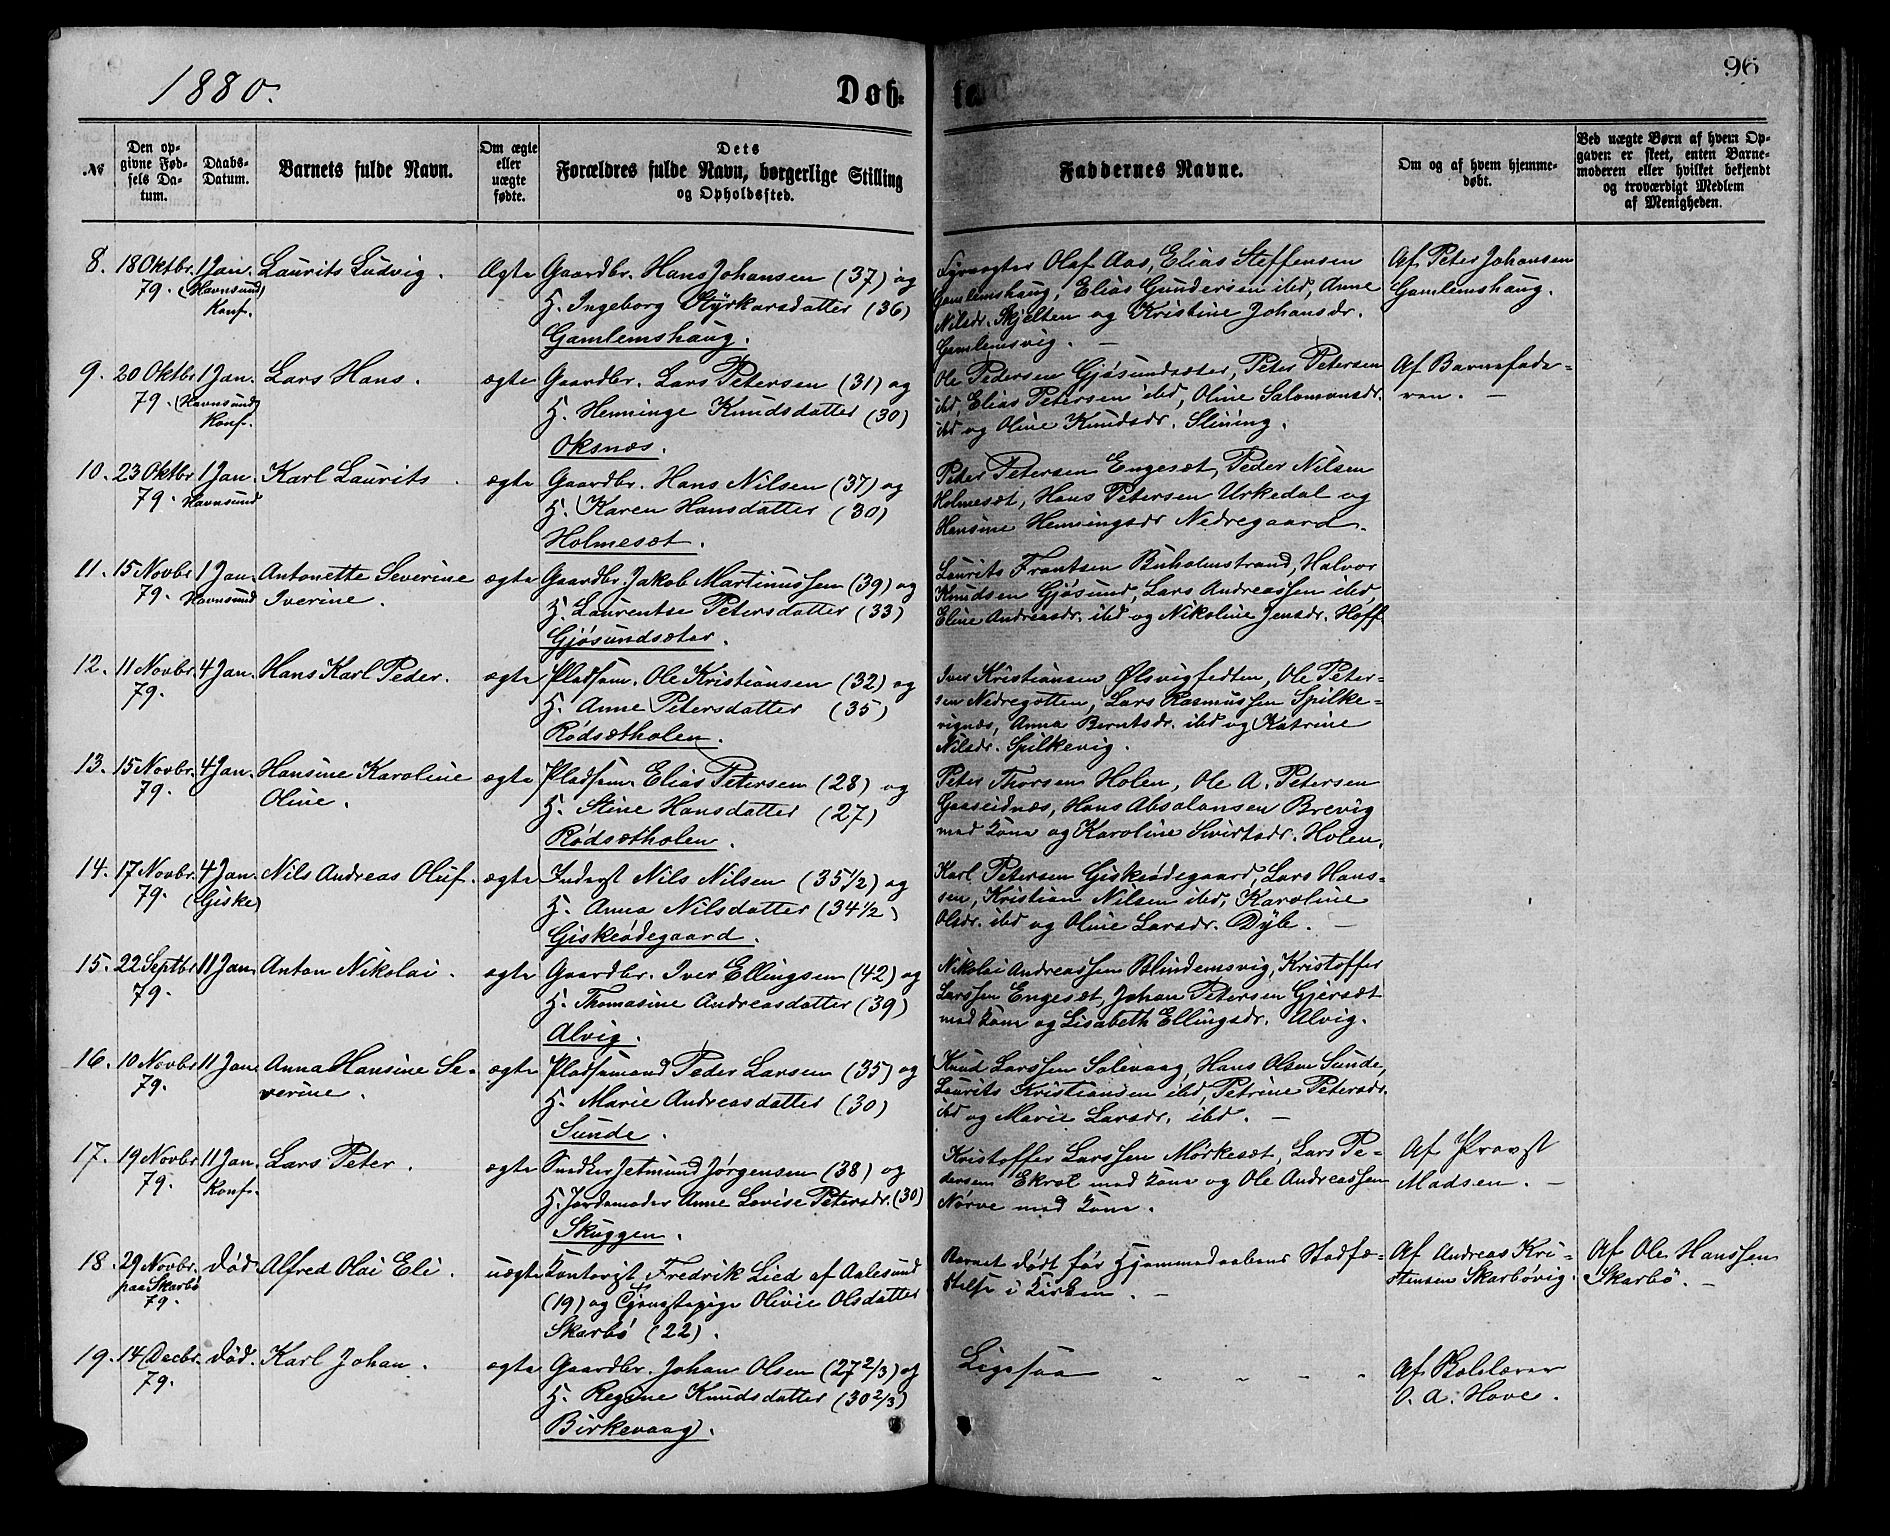 1880.
Døb-
te.
96
No
Den op-
givne Fød-
sels Da-
tum.
Daabs-
Datum.
Barnets fulde Navn.
Om ægte
eller
uægte
fødte.
Dets
Forældres fulde Navn, borgerlige Stilling
og Opholdssted.
Faddernes Navne.
Om og af hvem hjemme-
døbt.
Ved uægte Børn af hvem Op-
gaven er skeet, enten Barne-
moderen eller hvilket bekjendt
og troværdigt Medlem
af Menigheden.
8. 18 Oktbr. 79. 1 Jan. (Havnsund) Konf. Laurits Ludvig. Ægte
Gaardbr. Hans Johansen (37) og
H. Ingeborg Styrkarsdatter (36)
Gamlemshaug.
Fyrvogter Olaf Aas, Elias Steffensen
Gamlemshaug, Elias Gundersen ibd, Anne
Nilsdr. Skjelten og Kristine Johansdr.
Gamlemsvig. —
Af Peter Johansen
Gamlemshaug.
9. 20 Oktbr 79. 1 Jan. (Havnsund) Konf. Lars Hans. ægte
Gaardbr. Lars Petersen (31) og
H. Hemminge Knudsdatter (30)
Oksnæs.
Ole Pedersen Gjøsundsæter, Peter Petersen
ibd, Elias Petersen ibd, Oline Salomonsdr.
ibd og Oline Knudsdr. Slining.
Af Barnefade-
ren. —
10. 23 Oktbr 79. 1 Jan. Havnsund Karl Laurits. ægte
Gaardbr. Hans Nilsen (37) og
H. Karen Hansdatter (30)
Holmesæt.
Peter Petersen Engesæt, Peder Nilsen
Holmesæt, Hans Petersen Urkedal og
Hansine Hemmingsdr Nedregaard.
11. 15 Novbr 79. 1 Jan. Havnsund Antonette Severine
Iverine. ægte
Gaardbr. Jakob Martinussen (39) og
H. Laurentse Petersdatter (33)
Gjøsundsæter.
Laurits Frantsen Buholmstrand, Halvor
Knudsen Gjøsund, Lars Andreassen ibd,
Eline Andreasdr. ibd og Nikoline Jensdr. Hoff
12. 11 Novbr. 79. 4 Jan. Hans Karl Peder. ægte
Pladsm. Ole Kristiansen (32) og
H. Anne Petersdatter (35)
Rødsætholen.
Iver Kristiansen Ølsvigfedten, Ole Peter-
sen Nedregotten, Lars Rasmussen Spilke-
vignæs, Anna Berntsdr. ibd og Katrine
Nilsdr. Spilkevig.
13. 15 Novbr. 79. 4 Jan. Hansine Karoline
Oline. ægte
Pladsm. Elias Petersen (28) og
H. Stine Hansdatter (27)
Rødsætholen.
Peter Thorsen Holen, Ole A. Petersen
Gaaseidnæs, Hans Absalonsen Brevig
med Kone og Karoline Sivertsdr. Holen.
14. 17 Novbr. 79. 4 Jan. (Giske) Nils Andreas Oluf. ægte
Inderst Nils Nilsen (35 1/2) og
H. Anna Nilsdatter (34 1/2)
Giskeødegaard.
Karl Petersen Giskeødegaard, Lars Hans-
sen, Kristian Nilsen ibd, Karoline
Olsdr. ibd og Oline Larsdr. Dyb. —
15. 22 Septbr 79. 11 Jan. Anton Nikolai. ægte
Gaardbr. Iver Ellingsen (42) og
H. Thomasine Andreasdatter (39)
Alvig.
Nikolai Andreassen Blindemsvig, Kristoffer
Larssen Engesæt, Johan Petersen Gjersæt
med Kone og Lisabeth Ellingsdr. Alvig.
16. 10 Novbr 79. 11 Jan. Anna Hansine Se-
verine. ægte
Pladsmand Peder Larsen (35) og
H. Marie Andreasdatter (30)
Sunde.
Knud Larssen Solevaag, Hans Olsen Sunde,
Laurits Kristiansen ibd, Petrine Petersdr.
ibd og Marie Larsdr. ibd. —
17. 19 Novbr 79. 11 Jan. Konf. Lars Peter. ægte
Snedker Jetmund Jørgensen (38) og
H. Jordemoder Anne Lovise Petersdr. (30)
Skuggen.
Kristoffer Larssen Mørkesæt, Lars Pe-
dersen Ekrol med Kone og Ole Andreassen
Nørve med Kone.
Af Provst
Madsen. —
18. 29 Novbr. paa Skarbø 79. død Alfred Olai Eli. uægte
Kontorist Fredrik Lied af Aalesund
(19) og Tjenestepige Olivie Olsdatter
Skarbø (22).
Barnet dødt før Hjemmedaabens Stadfæ-
stelse i Kirken. —
Af Andreas Kri-
stensen Skarbøvig.
Af Ole Hanssen
Skarbø. —
19. 14 Decbr. 79. død. Karl Johan. ægte
Gaardbr. Johan Olsen (27 2/3) og
H. Regine Knudsdatter (30 2/3)
Birkevaag.
Ligesaa " " " "
Af Skolelærer
O. A. Hove.